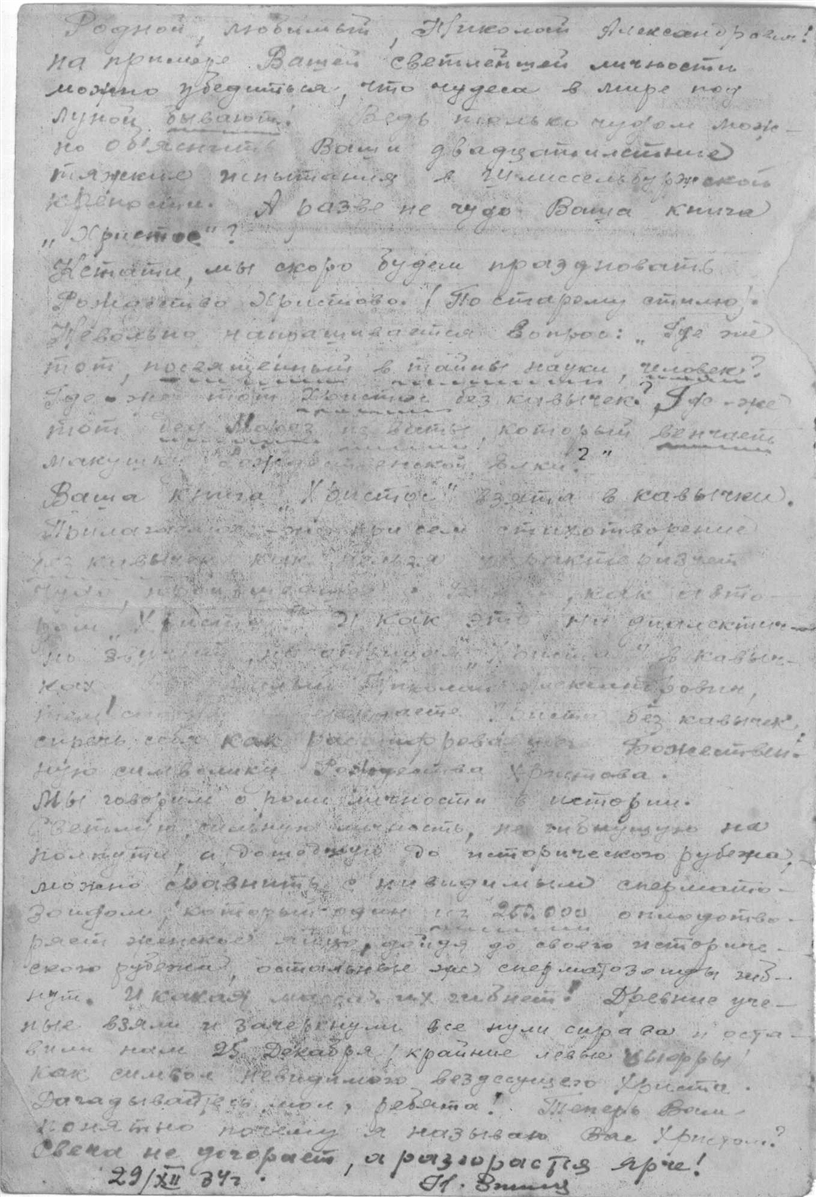 Родной, любимый, Николай Александрович!
на примере Вашей светлейшей личности
можно убедиться, что чудеса в мире под
луной бывают! Ведь только чудом мож-
но объяснить Ваши двадцатилетние
тяжкие испытания в Шлиссельбуржской
крепости. А разве не чудо Ваша книга
„Христос"?
Кстати, мы скоро будем праздновать
Рождество Христово. (По старому стилю).
Невольно напрашивается вопрос: „Где же
тот, посвященный в тайны науки, человек?
Где же тот Христос без кавычек? Где же
тот дед Мороз из ваты, который венчает
макушку рождественской ёлки?"
Ваша книга „Христос" взята в кавычки.
Прилагаемое при сем стихотворение
без кавычек как нельзя характеризует
чудо, как авто-
ром „Христос". И как это ни диалектич-
но звучит, но в кавыч-
ках Николай Александрович,
Христа без кавычек,
сиречь себя как расшифровавшего Божествен-
ную символику Рождества Христова.
Мы говорим о роли личности в истории.
Светлую, сильную личность, не гибнущую на
полпути, а дошедшую до исторического рубежа,
можно сравнить с невидимым спермато-
зоидом, который один из 250.000 оплодотво-
ряет женское яйцо, дойдя до своего историче-
ского рубежа, остальные же сперматозоиды гиб-
нут. И какая масса их гибнет! Древние уче-
ные взяли и зачеркнули все нули справа и оста-
вили нам 25 Декабря (крайние левые цыфры)
как символ невидимого вездесущего Христа.
Догадывайтесь, мол, ребята! Теперь Вам
понятно почему я называю Вас Христом?
Свеча не догорает, а разгорается ярче!
29/XII 34 г. Н.